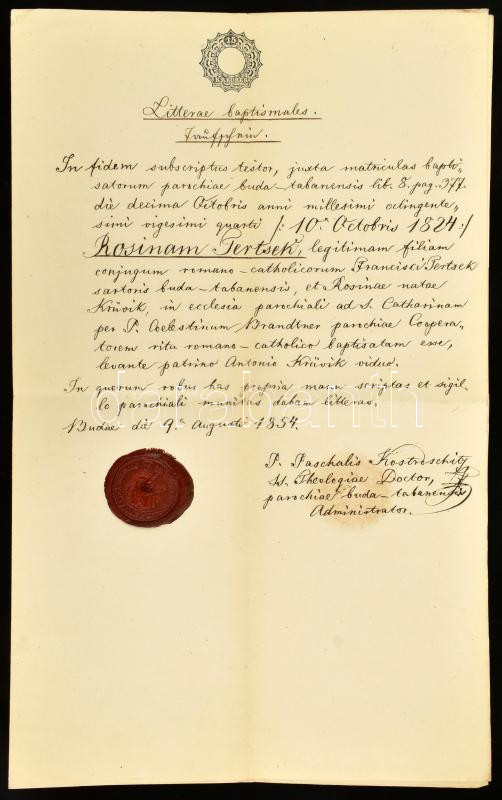 15
KREUZER
Litterae baptismales.
Taufschein.
In fidem subscriptus testor, juxta matriculas bapti-
satorum parochiae buda-tabanensis lib. 8. pag. 377.
die decima Octobris anni millesimi octingente-
simi vigesimi quarti /: 10ª Octobris 1824 :/
Rosinam Tertsek, legitimam filiam
conjugum romano-catholicorum Francisci Tertsek
sartoris buda-tabanensis, et Rosinae natae
Krüvik, in ecclesia parochiali ad S. Catharinam
per P. Coelestinum Brandtner parochiae Coopera-
torem ritu romano-catholico baptisatam esse,
levante patrino Antonio Krüvik viduo.
In quorum robur has propria manu scriptas et sigil-
lo parochiali munitas dabam litteras.
Budae die 9. Augusti 1854.
P. Paschalis Kostroschitz
Ss. Theologiae Doctor,
parochiae buda-tabanensis
Administrator.
darabanth